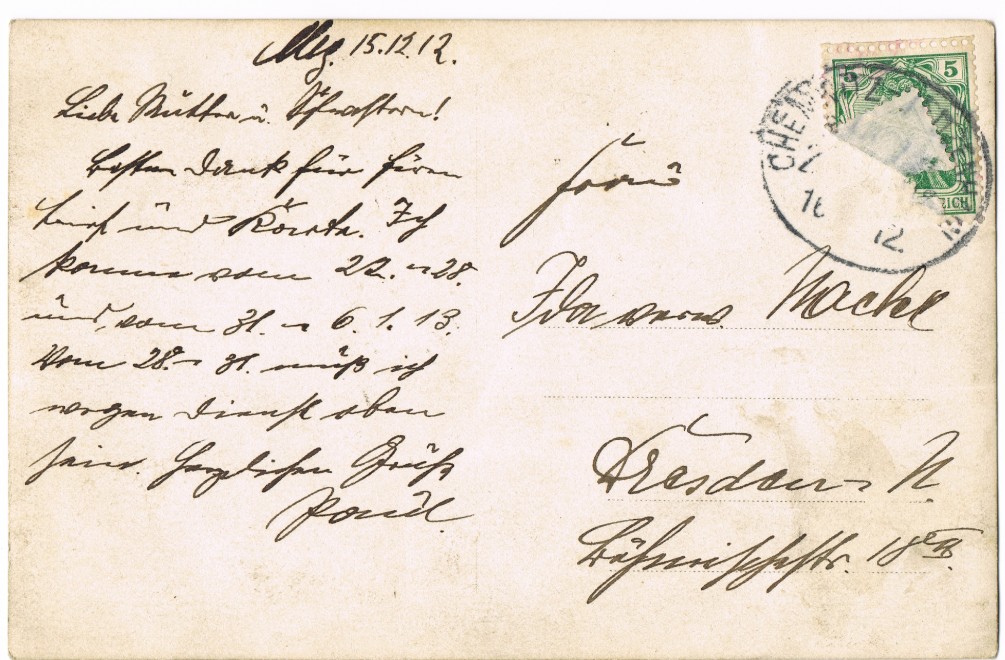 15.12.12.
Liebe Mutter u. Schwestern!
Besten Dank für Euren
Brief und Karte. Ich
komme vom 22. - 28.
und vom 31. - 6.1.13.
Vom 28. - 31. muß ich
wegen Dienst oben
sein. Herzlichen Gruß
Paul.
5 5
CHEMNITZ
16 12
REICH
Frau
Ida verw. Macke
Dresden-N.
Böhmischestr. 18 III.